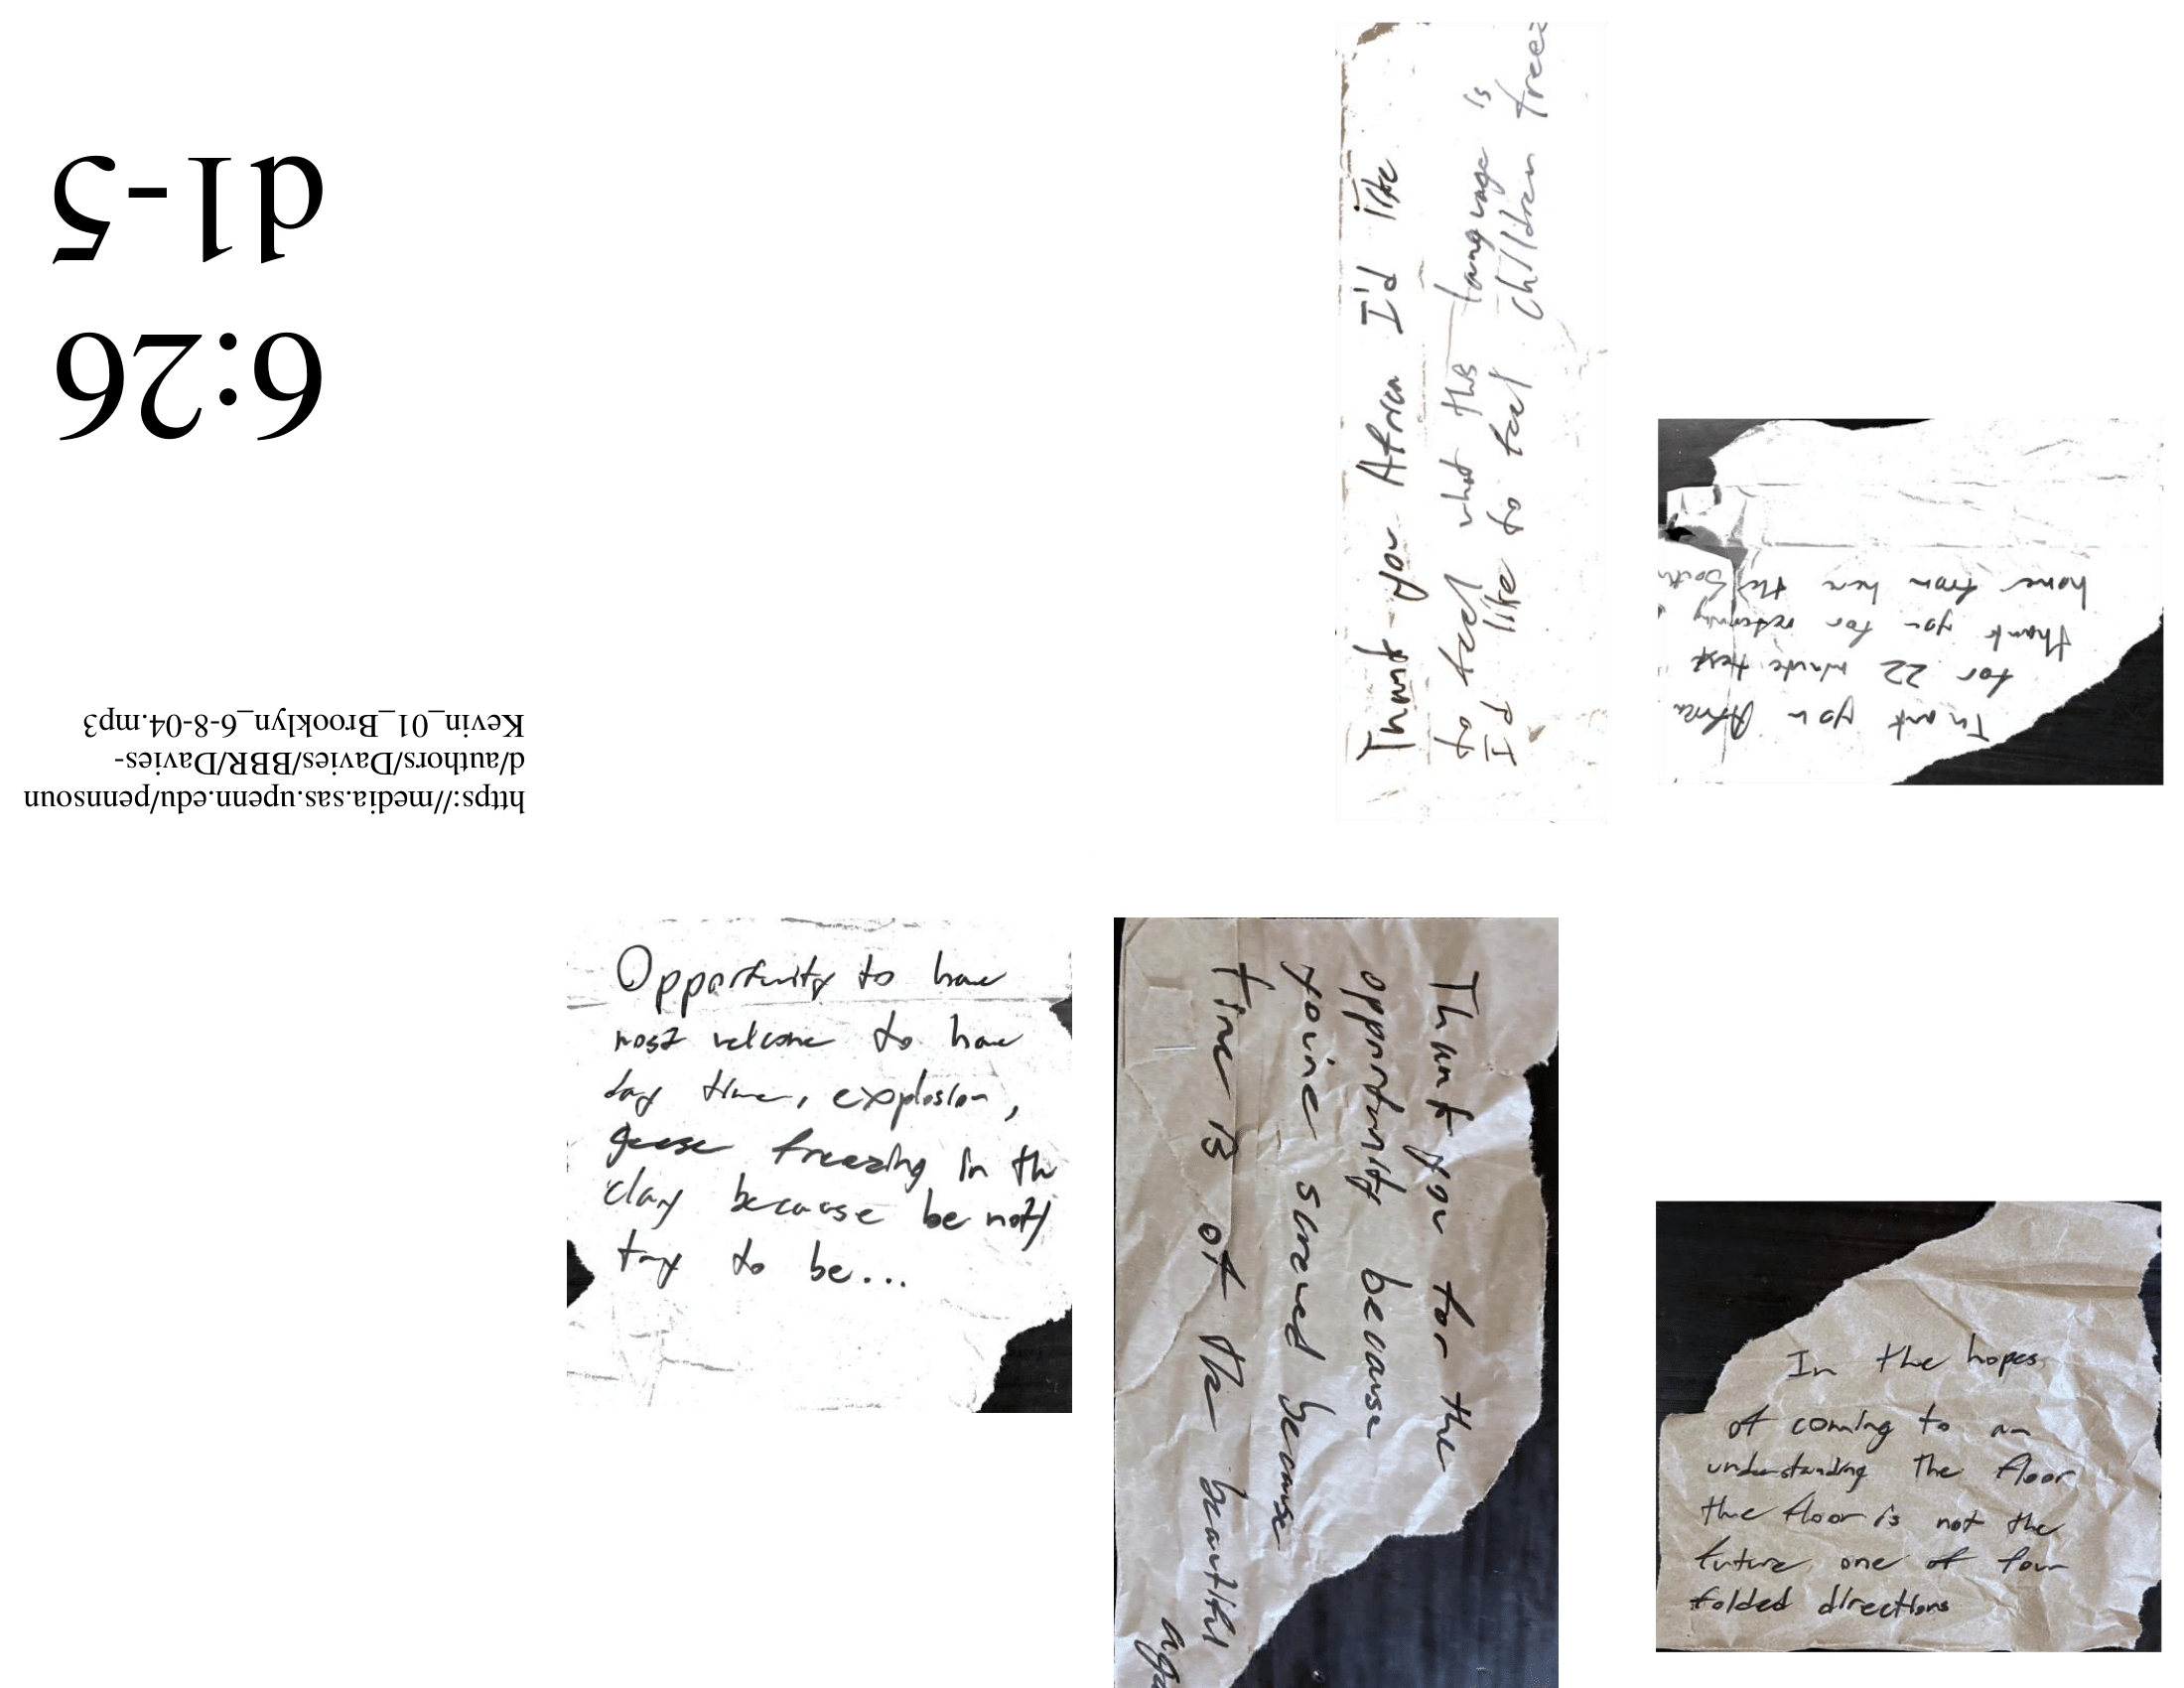 d1-5
6:26
https://media.sas.upenn.edu/pennsoun
d/authors/Davies/BBR/Davies-
Kevin_01_Brooklyn_6-8-04.mp3
Thank you Africa I'd like
to feel what this language is
I'd like to feel children free
Thank you Africa
for 22 minute text
thank you for returning
home from here the South
Opportunity to have
most welcome to have
day time, explosion,
geese freezing in the
clay because be not
try to be...
Thank you for the
opportunity because
you're scared because
time is of the beautiful
In the hopes
of coming to an
understanding the floor
the floor is not the
future, one of four
folded directions